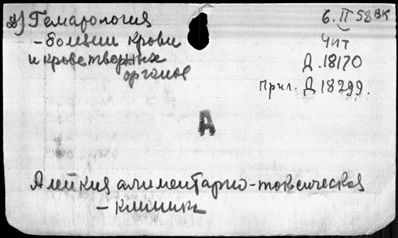 д) Гематология
- болезни крови
и кроветворных
органов
6.II 58 ВК
Чит
Д.18170
Прил. Д 18299.
А
Алейкия алиментарно-токсическая
- клиника